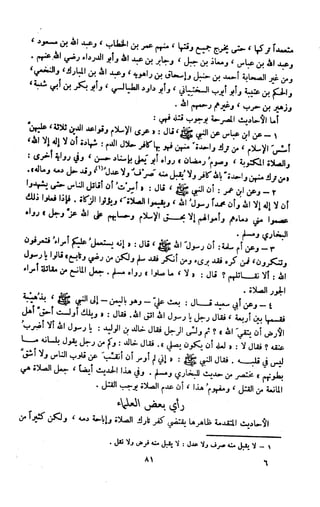 متعمداً تركها ، حتى يخرج جميع وقتها ، منهم عمر بن الخطاب ، وعبد الله بن مسعود ،
وعبد الله بن عباس ، ومعاذ بن جبل ، وجابر بن عبد الله وأبو الدرداء رضي الله عنهم .
ومن غير الصحابة أحمد بن حنبل وإسحاق بن راهويه ، وعبد الله بن المبارك ، والنخعي ،
والحكم بن عتيبة وأبو أيوب السختياني ، وأبو داود الطيالسي ، وأبو بكر بن أبي شيبة ،
وزهير بن حرب ، وغيرهم رحمهم الله .
أما الأحاديث المصرحة بوجوب قتله فهي :
١ - عن ابن عباس عن النبي ﷺ ، قال : « عرى الإسلام وقواعد الدين ثلاثة ، عليهن
أسس الإسلام ، من ترك واحدة منهن فهو بها كافر حلال الدم : شهادة أن لا إله إلا الله ،
والصلاة المكتوبة ، وصوم رمضان » رواه أبو يعلى بإسناد حسن ، وفي رواية أخرى :
« ومن ترك منهن واحدة بالله كافر ولا يقبل منه صرف ولا عدل (١) وقد حل دمه وماله» .
٢ - وعن ابن عمر : أن النبي ﷺ ، قال : « أمرت أن أقاتل الناس حتى يشهدوا
أن لا إله إلا الله وأن محمداً رسول الله ، ويقيموا الصلاة ، ويؤتوا الزكاة . فإذا فعلوا ذلك
عصموا مني دماءهم وأموالهم إلا بحق الإسلام وحسابهم على الله عز وجل » رواه
البخاري ومسلم .
٣ - وعن أم سلمة : أن رسول الله ﷺ ، قال : « إنه يستعمل عليكم أمراء فتعرفون
وتنكرون ، فمن كره فقد برىء ومن أنكر فقد سلم ولكن من رضي وتابع » قالوا يا رسول
الله : ألا نقاتلهم ؟ قال : « لا ، ما صلوا » رواه مسلم . جعل المانع من مقاتلة أمراء
الجور الصلاة .
٤ - وعن أبي سعيد قال : بعث علي - وهو باليمن - إلى النبي ﷺ ، بذهيبة
فقسمها بين أربعة ، فقال رجل يا رسول الله اتق الله . فقال : « ويلك أولست أحق أهل
الأرض أن يتقي الله » ؟ ثم ولى الرجل فقال خالد بن الوليد : يا رسول الله ألا أضرب
عنقه ؟ فقال لا : « لعله أن يكون يصلي » . فقال خالد : وكم من رجل يقول بلسانه ما
ليس في قلبه . فقال النبي ﷺ : « إني لم أومر أن أنقب عن قلوب الناس ولا أشق
بطونهم » مختصر من حديث للبخاري ومسلم . وفي هذا الحديث أيضاً ، جعل الصلاة هي
المانعة من القتل ، ومفهوم هذا ، أن عدم الصلاة يوجب القتل .
رأي بعض العلماء
الأحاديث المتقدمة ظاهرها يقتضي كفر تارك الصلاة وإباحة دمه ، ولكن كثيراً من
١ - لا يقبل منه صرف ولا عدل : لا يقبل منه فرض ولا نفل .
٨١
٦